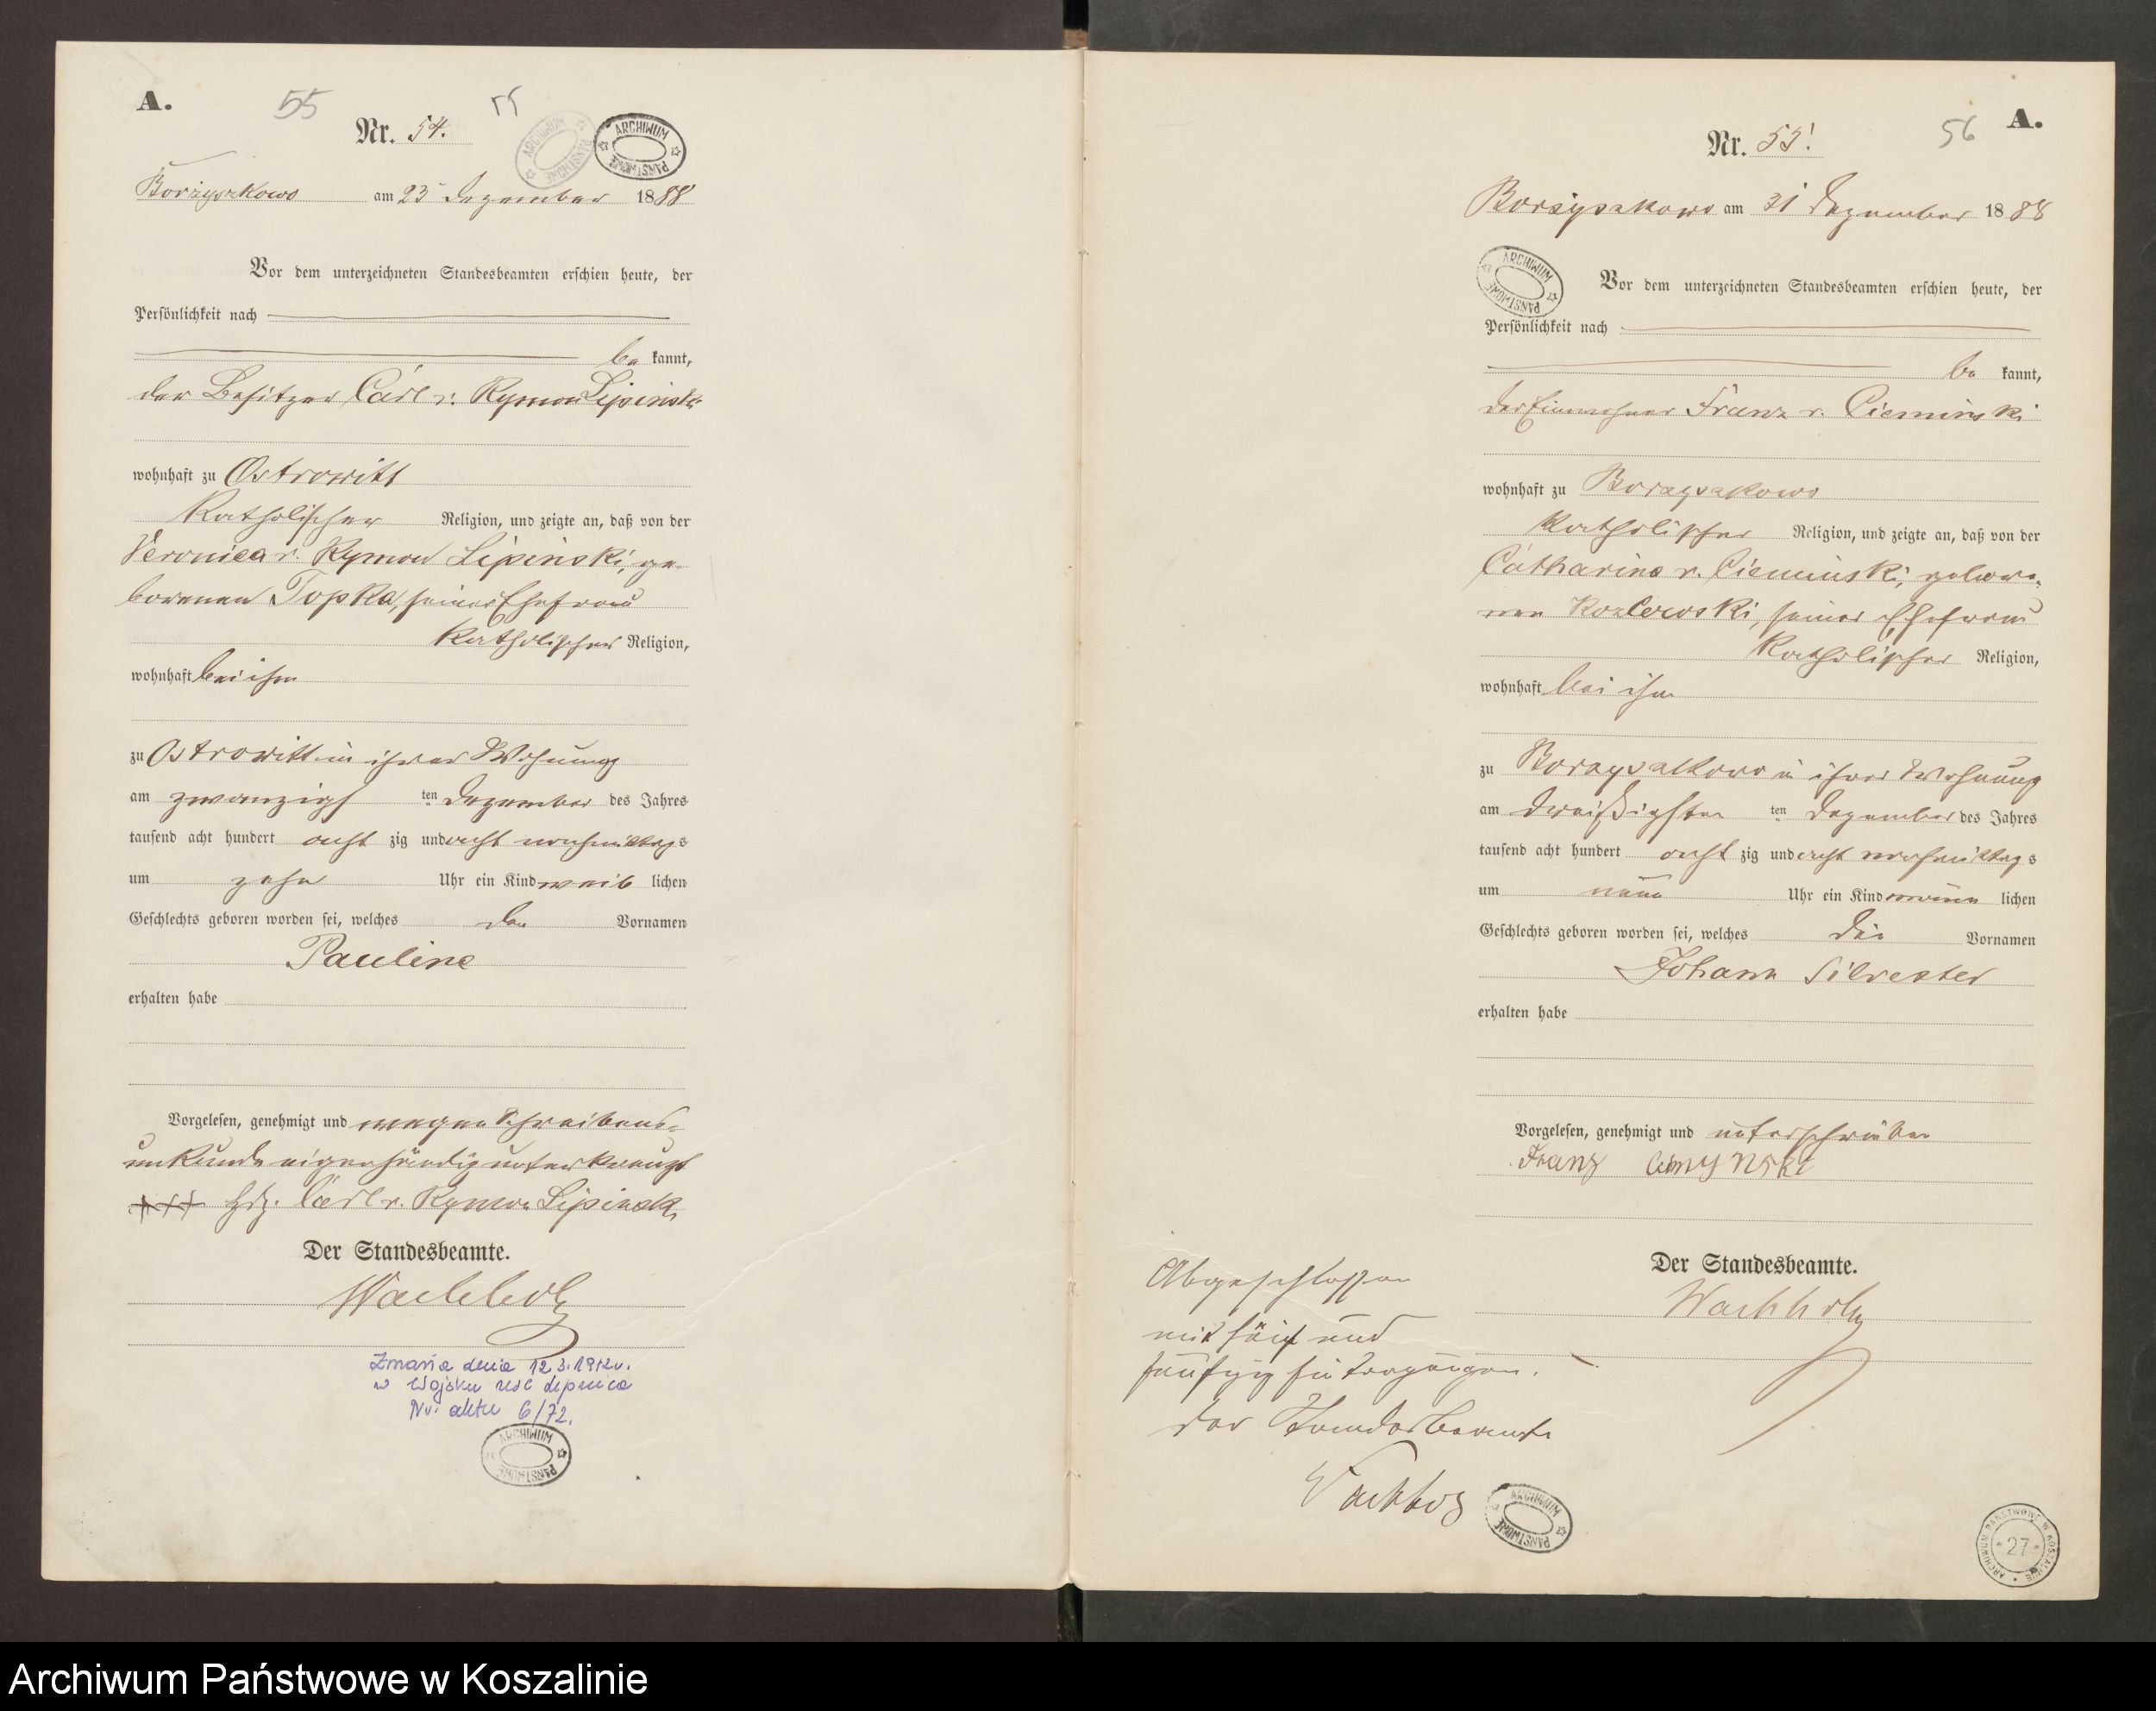 A.
55
Nr. 54.
ARCHIWUM PAŃSTWOWE
ARCHIWUM PAŃSTWOWE
Borzyszkowo am 23 Dezember 1888
Vor dem unterzeichneten Standesbeamten erschien heute, der
Persönlichkeit nach
be kannt,
der Besitzer Carl v. Rymon Lipinski
wohnhaft zu Ostrowitt
Katholischer Religion, und zeigte an, daß von der
Veronica v. Rymon Lipinski, ge-
borenen Topka, seiner Ehefrau
Katholischer Religion,
wohnhaft bei ihm
zu Ostrowitt in ihrer Wohnung
am zwanzigs ten Dezember des Jahres
tausend acht hundert acht zig und acht nachmittags
um zehn Uhr ein Kind weib lichen
Geschlechts geboren worden sei, welches den Vornamen
Pauline
erhalten habe
Vorgelesen, genehmigt und wegen Schreibens-
unkunde eigenhändig unterkreuzt
+++ Hdz. Carl v. Rymon Lipinski
Der Standesbeamte.
Wachholz
Zmarła dnia 12.3.1972 r.
w Wojsku usc Lipnica
Nr. aktu 6/72.
ARCHIWUM PAŃSTWOWE
A.
56
Nr. 55.
Borzyszkowo am 31 Dezember 1888
ARCHIWUM PAŃSTWOWE
Vor dem unterzeichneten Standesbeamten erschien heute, der
Persönlichkeit nach
be kannt,
der Einwohner Franz v. Cieminski
wohnhaft zu Borzyszkowo
Katholischer Religion, und zeigte an, daß von der
Catharina v. Cieminski, gebore-
nen Kozlowski, seiner Ehefrau
Katholischer Religion,
wohnhaft bei ihm
zu Borzyszkowo in ihrer Wohnung
am dreißigsten ten Dezember des Jahres
tausend acht hundert acht zig und acht nachmittags
um neun Uhr ein Kind männ lichen
Geschlechts geboren worden sei, welches die Vornamen
Johann Silvester
erhalten habe
Vorgelesen, genehmigt und unterschrieben
Franz
Der Standesbeamte.
Wachholz
Abgeschlossen
mit fünf und
fünfzig Eintragungen.
Der Standesbeamte
Wachholz
ARCHIWUM PAŃSTWOWE
ARCHIWUM PAŃSTWOWE W KOSZALINIE
27
Archiwum Państwowe w Koszalinie